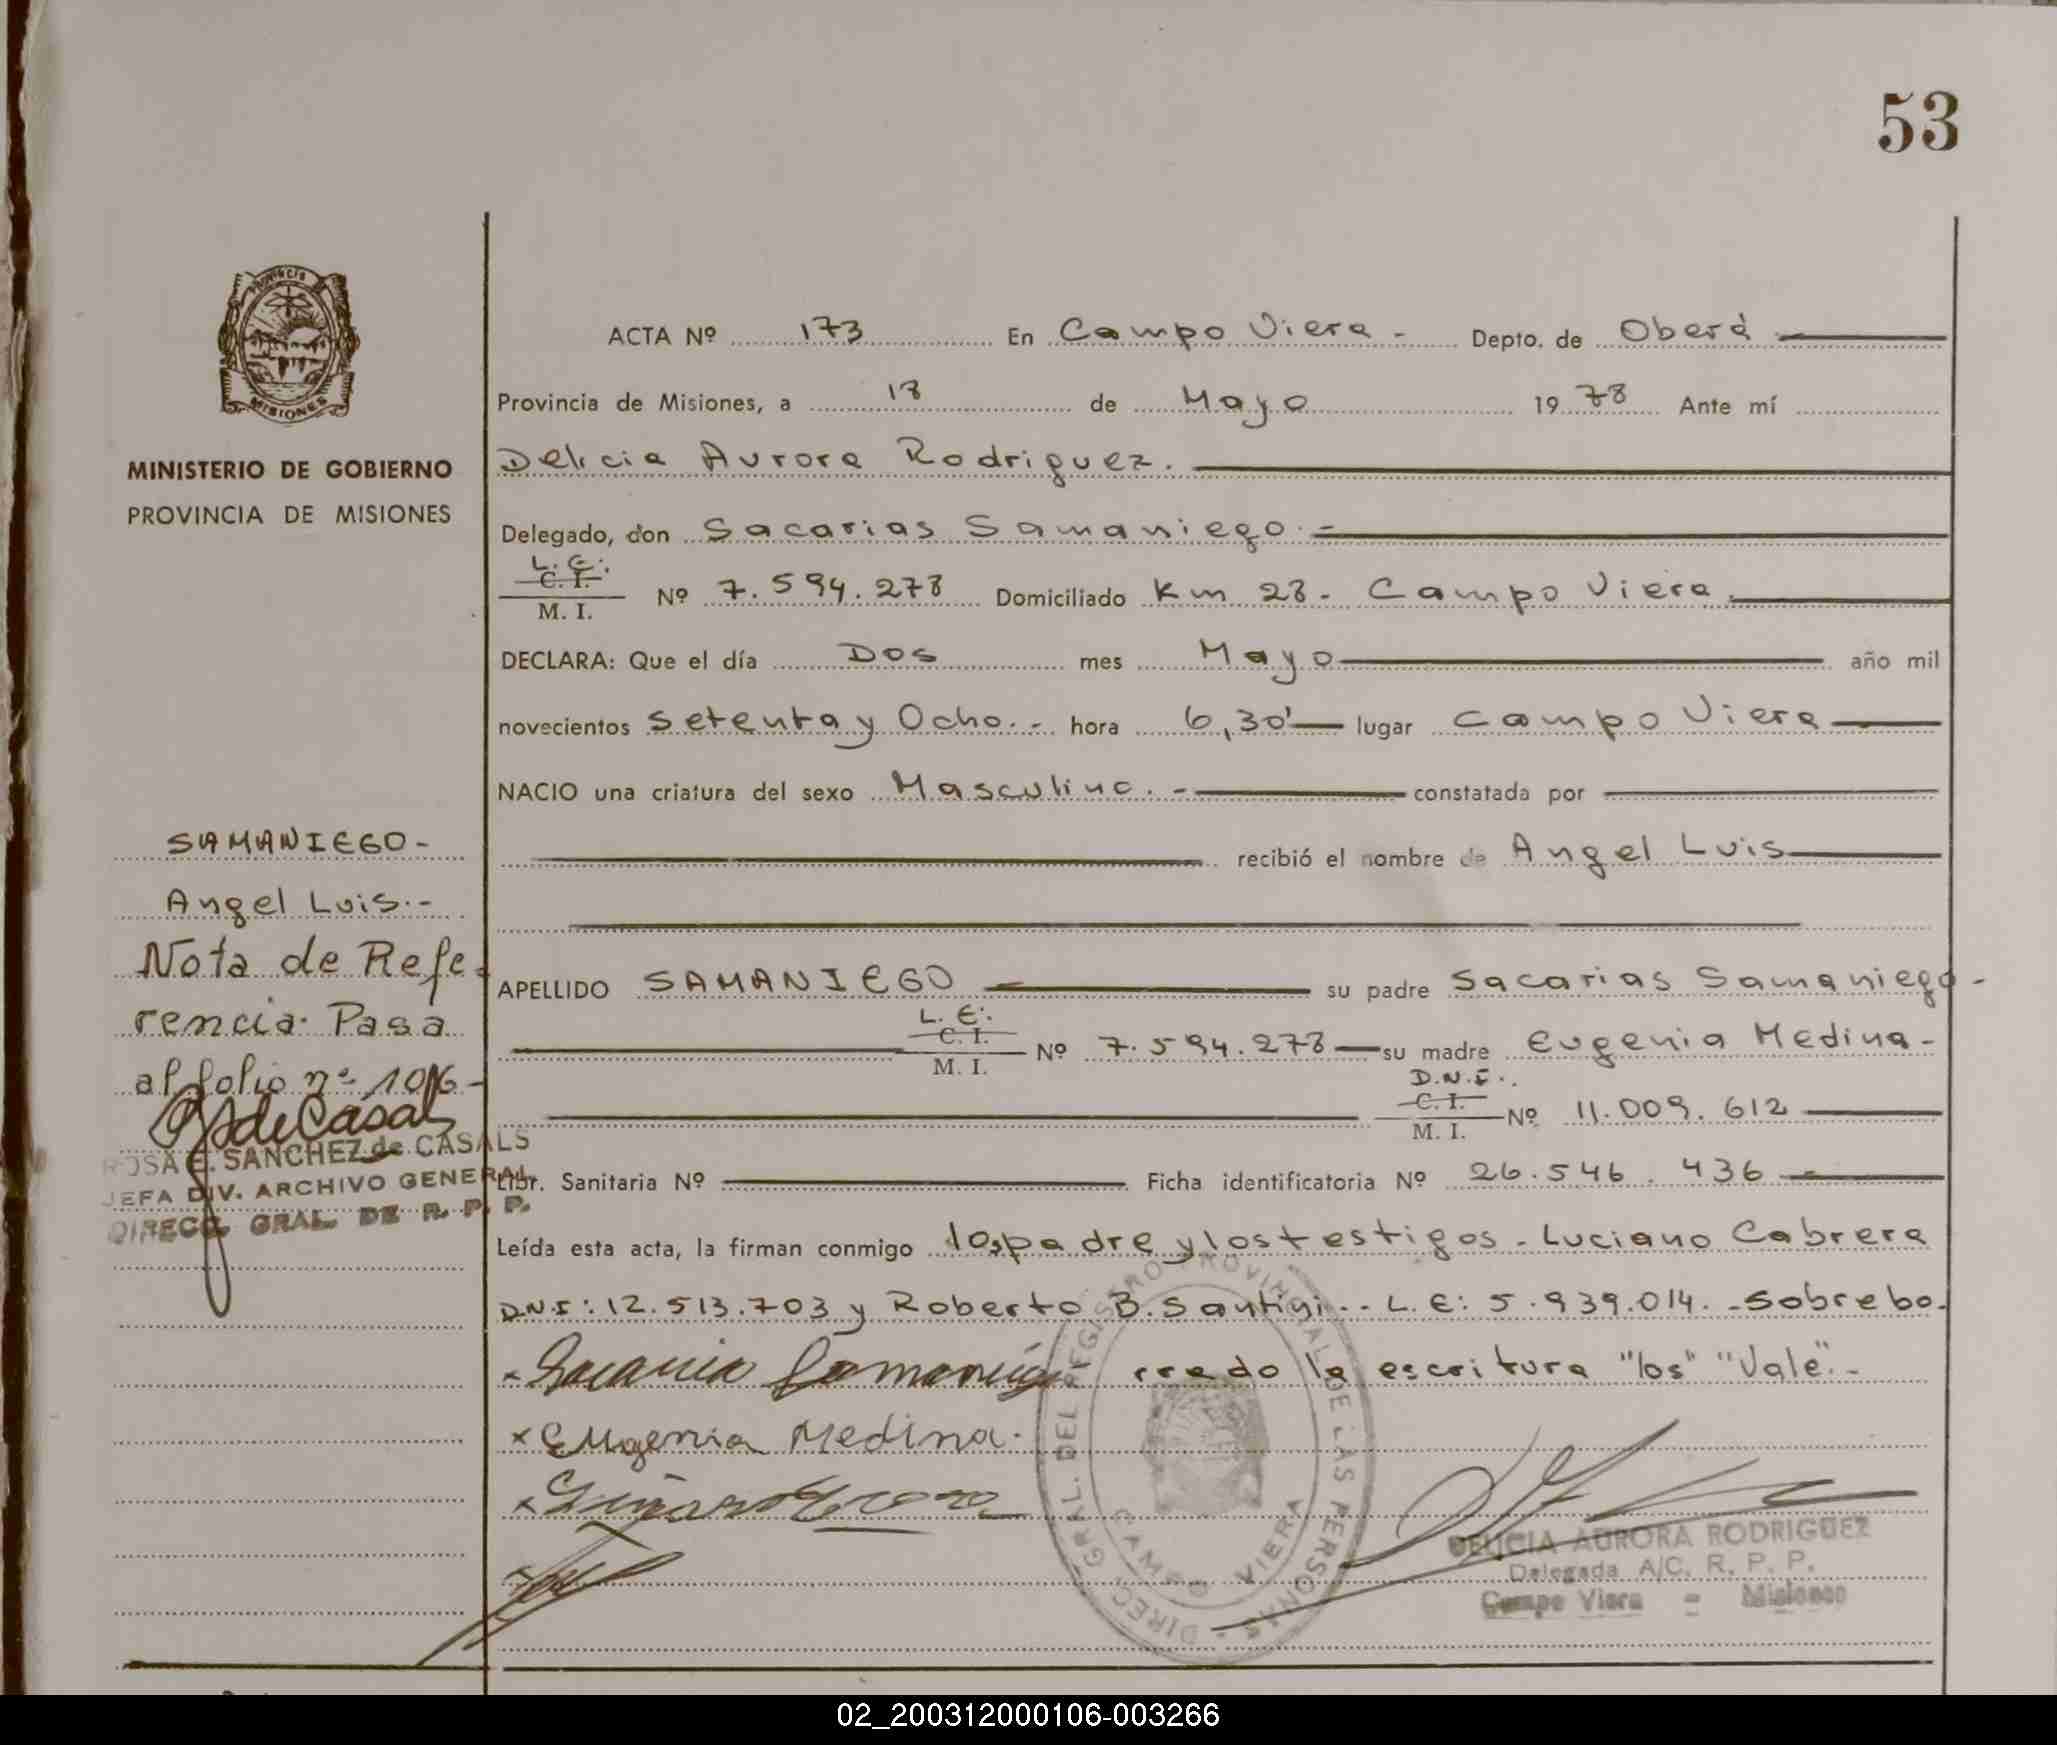 53
PROVINCIA
MISIONES
MINISTERIO DE GOBIERNO
PROVINCIA DE MISIONES
ACTA Nº 173 En Campo Viera - Depto. de Oberá
Provincia de Misiones, a 18 de Mayo 1978 Ante mí
Delicia Aurora Rodriguez.
Delegado, don Sacarias Samaniego.-
L.E:
C. I.
M. I. Nº 7.594.278 Domiciliado Km 28 - Campo Viera.
DECLARA: Que el día Dos mes Mayo año mil
novecientos Setenta y Ocho.- hora 6,30' lugar Campo Viera
NACIO una criatura del sexo Masculino.- constatada por
recibió el nombre de Angel Luis
APELLIDO SAMANIEGO su padre Sacarias Samaniego-
L.E:
C. I.
M. I. Nº 7.594.278 su madre Eugenia Medina-
D.N.I.:
C. I.
M. I. Nº 11.009.612
Libr. Sanitaria Nº Ficha identificatoria Nº 26.546.436
Leída esta acta, la firman conmigo los padre y los testigos - Luciano Cabrera
D.N.I: 12.513.703 y Roberto B. Santini.- L.E: 5.939.014. - Sobrebo-
rredo la escritura "los" "Vale".-
x Eugenia Medina.
SAMANIEGO-
Angel Luis.-
Nota de Refe-
rencia. Pasa
al folio nº 106-
ROSA E. SANCHEZ de CASALS
JEFA DIV. ARCHIVO GENERAL
DIRECC. GRAL. DE R. P. P.
DIREC. GRAL. DEL REGISTRO PROVINCIAL DE LAS PERSONAS
CAMPO VIERA
DELICIA AURORA RODRIGUEZ
Delegada A/C. R. P. P.
Campo Viera - Misiones
02_200312000106-003266